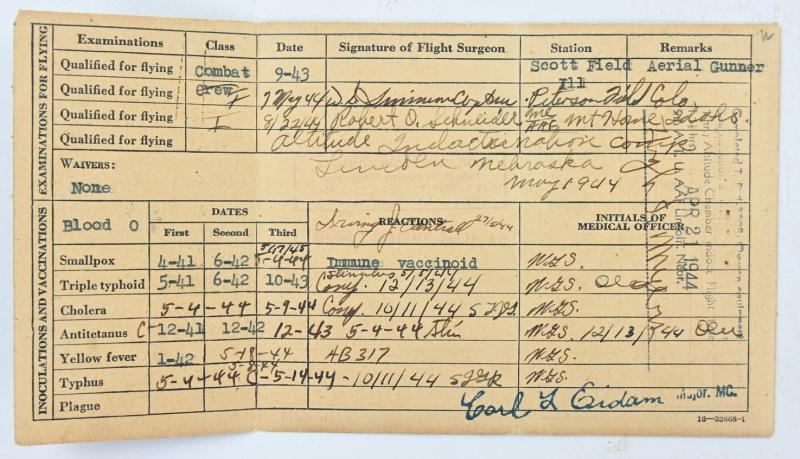 EXAMINATIONS FOR FLYING
Examinations Class Date Signature of Flight Surgeon Station Remarks
Qualified for flying Combat 9-43 Scott Field Aerial Gunner
Crew Ill
Qualified for flying I 7 May 44 Peterson Field Colo
Qualified for flying I 9/22/44 Robert O. Schneider MC AAF Mt Home Idaho.
Qualified for flying Altitude Indoctrination Comp
WAIVERS: Lincoln Nebraska
None May 1944
APR 21 1944
AAF Lincoln, Nebr.
INOCULATIONS AND VACCINATIONS
Blood O DATES REACTIONS INITIALS OF MEDICAL OFFICER
First Second Third
Smallpox 4-41 6-42 5-4-44 Immune vaccinoid W.G.S.
Triple typhoid 5-41 6-42 10-43 Stimulus 5/5/44 12/13/44 W.G.S.
Cholera 5-4-44 5-9-44 10/11/44 W.G.S.
Antitetanus C 12-41 12-42 12-43 5-4-44 Stim W.G.S. 12/13/44
Yellow fever 1-42 5-19-44 AB317 W.G.S.
Typhus 5-4-44 C-5-14-44-10/11/44 W.G.S.
Plague Carl L Eidam Major. MC.
16-32868-1